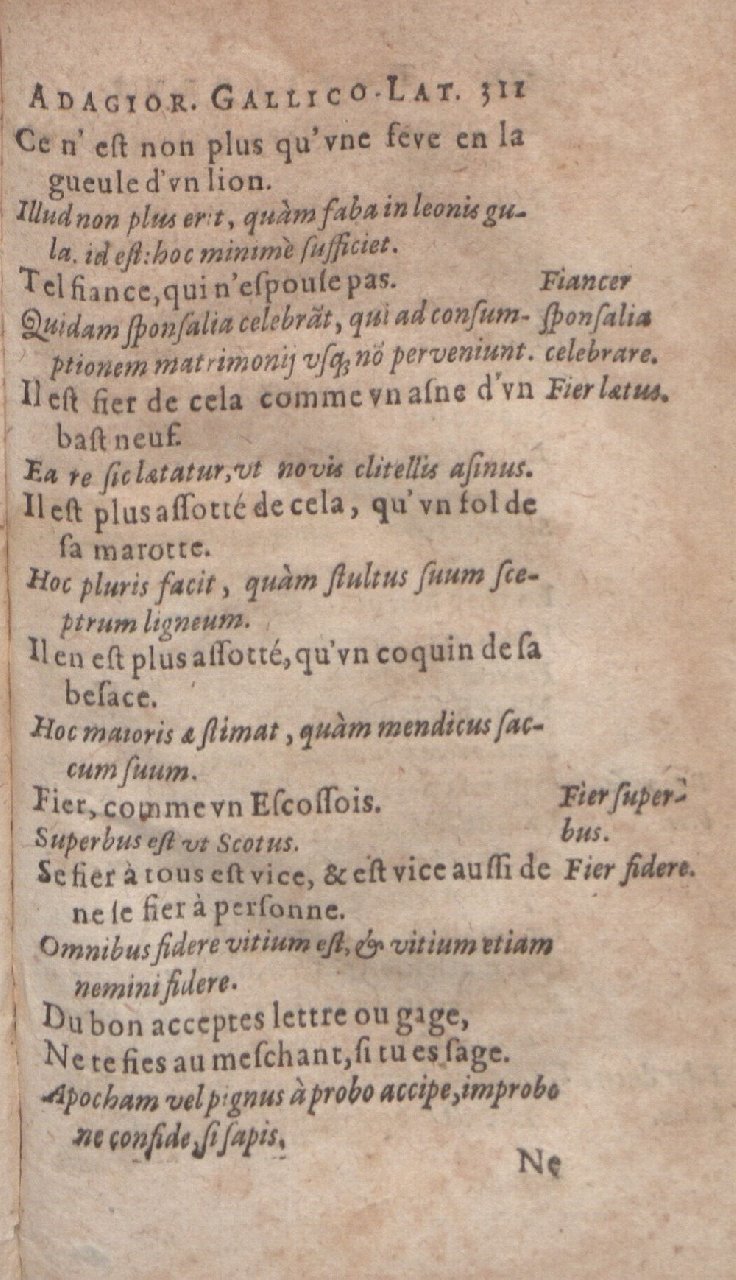 ADAGIOR. GALLICO-LAT. 311
Ce n' eſt non plus qu'vne feve en la
gueule d'vn lion.
Illud non plus erit, quàm faba in leonis gu-
la. id eſt: hoc minimè ſufficiet.
Tel fiance, qui n'eſpouſe pas. Fiancer
Quidam ſponſalia celebrāt, qui ad conſum- ſponſalia
ptionem matrimonij vſq; nō perveniunt. celebrare.
Il eſt fier de cela comme vn aſne d'vn Fier lætus.
baſt neuf.
Ea re ſic lætatur, vt novis clitellis aſinus.
Il eſt plus aſſotté de cela, qu' vn fol de
ſa marotte.
Hoc pluris facit, quàm ſtultus ſuum ſce-
ptrum ligneum.
Il en eſt plus aſſotté, qu'vn coquin de ſa
beſace.
Hoc maioris æſtimat, quàm mendicus ſac-
cum ſuum.
Fier, comme vn Eſcoſſois. Fier ſuper-
Superbus eſt vt Scotus. bus.
Se fier à tous eſt vice, & eſt vice auſſi de Fier fidere.
ne ſe fier à perſonne.
Omnibus fidere vitium eſt, & vitium etiam
nemini fidere.
Du bon acceptes lettre ou gage,
Ne te fies au meſchant, ſi tu es ſage.
Apocham vel pignus à probo accipe, improbo
ne confide, ſi ſapis.
Ne